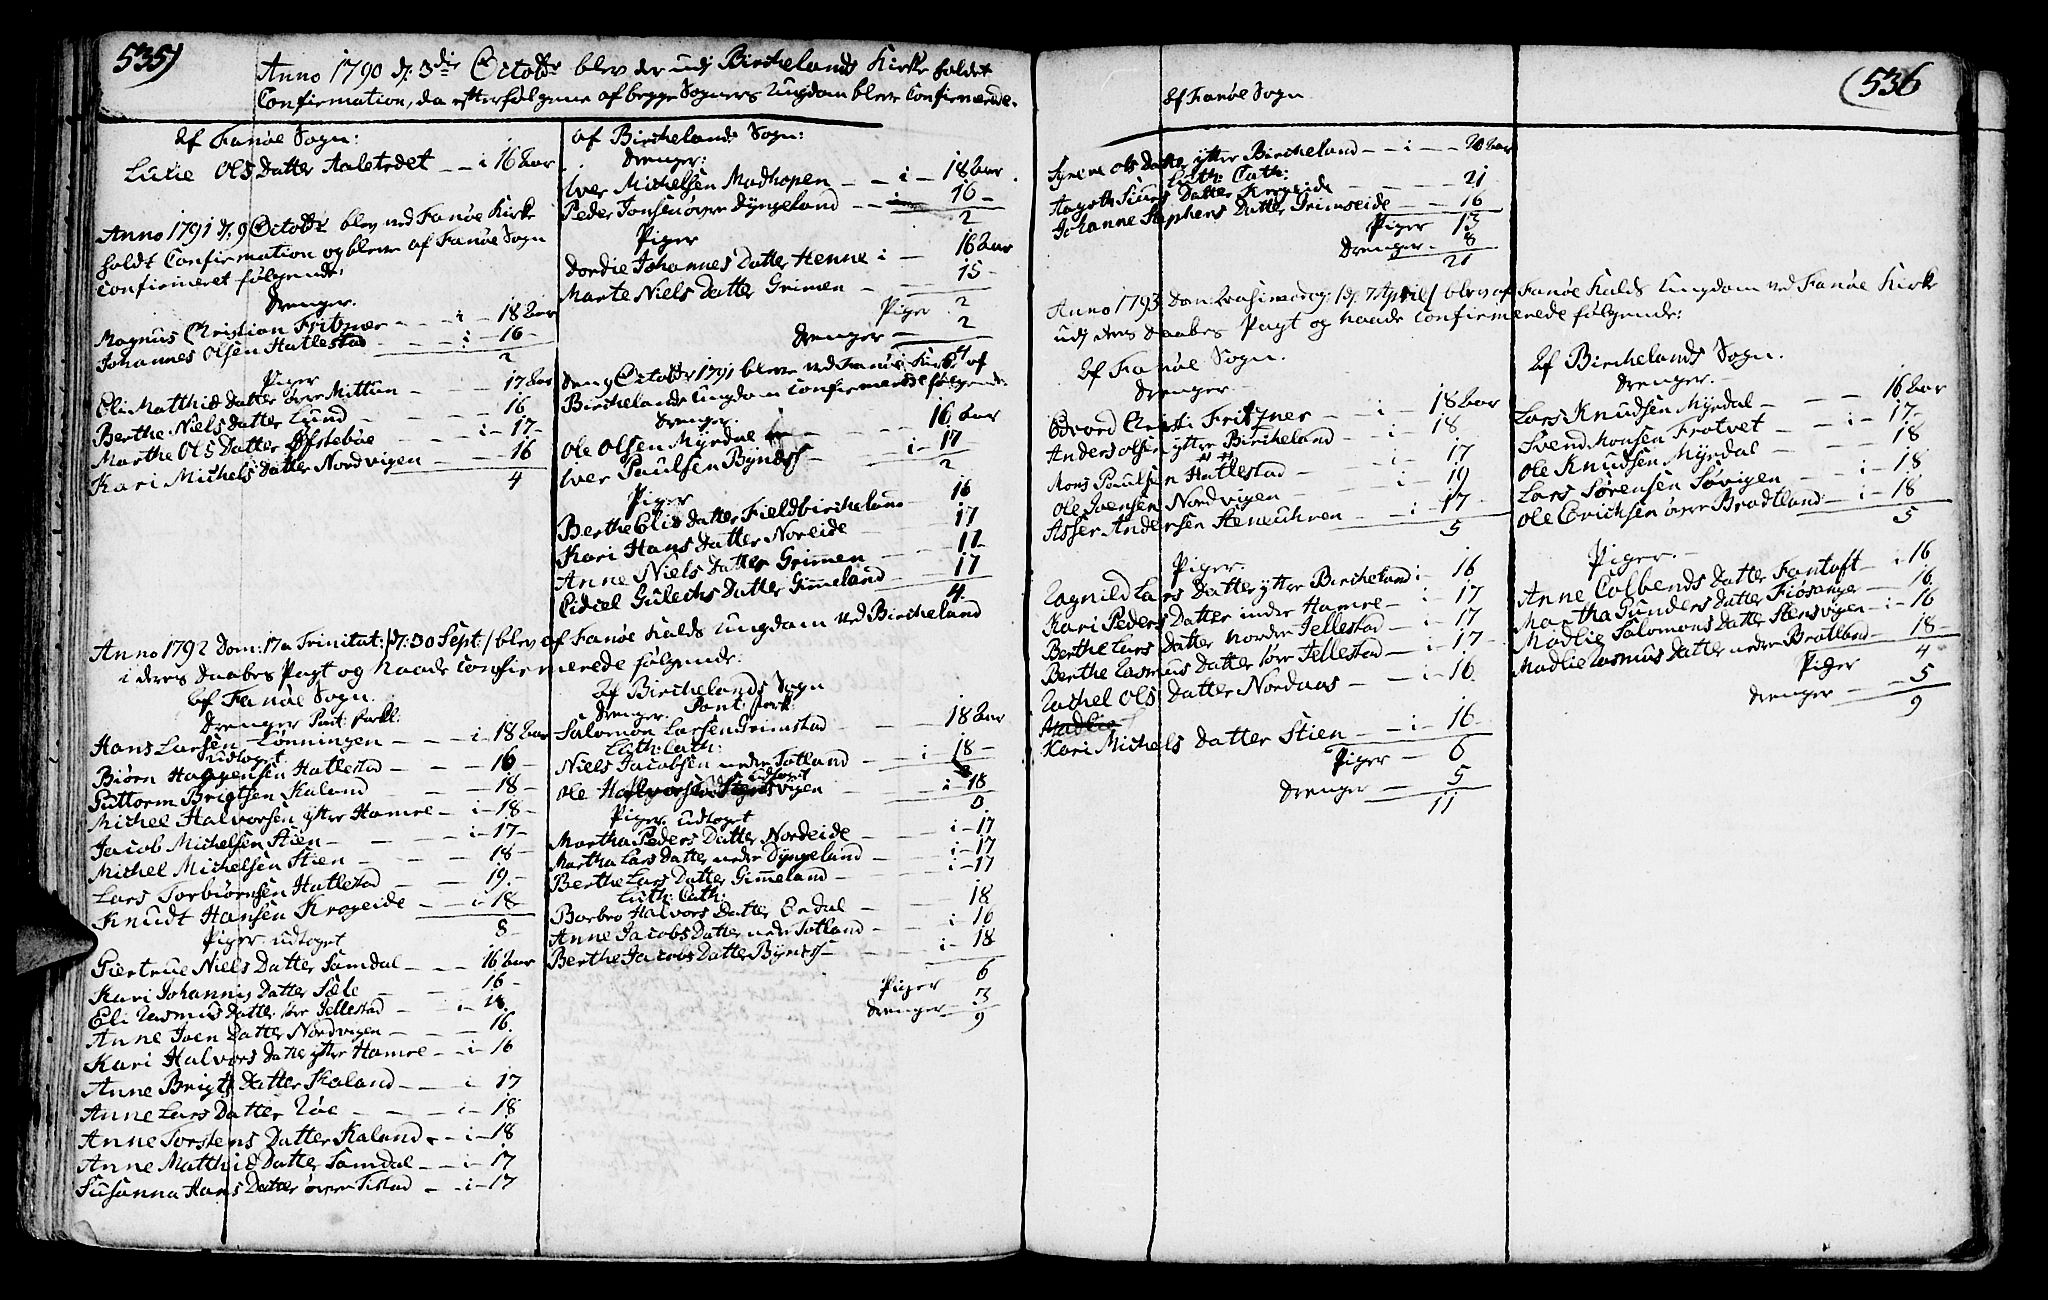 535)
Anno 1790 d: 3die Octobr blev der udj Birchelands Kirke holdet
Confirmation, da efterfølgene af begge Sogners Ungdom bleve Confirmerede.
Af Fanøe Sogn:
Lucie Ols Datter Aaletrædet - - i 16 Aar
Anno 1791 d: 9 Octobr blev ved Fanøe Kirke
holdt Confirmation og bleve af Fanøe Sogn
Confirmeret følgende:
Drenger.
Magnus Christian Fritzner - - i - 18 Aar
Johannes Olsen Hatlestad - - i - 16
2
Piger
Eli Matthis Datter øvre Mittun - - 17 Aar
Berthe Niels Datter Lund - - 16
Marthe Ols Datter Øfstebøe - - i - 17 -
Kari Michels Datter Nordvigen - - 16
4
Anno 1792 Dom: 17 a Trinitat: /d: 30 Sept:/ blev af Fanøe Kalds Ungdom ved Bircheland
i deres Daabes Pagt og Naade Confirmerede følgende:
Af Fanøe Sogn.
Drenger Pont: Forkl:
Hans Larsen Lønningen - - i - 18 Aar
udtoget
Biørn Haagensen Hatlestad - - 16 -
Guttorm Brigtsen Kaland - - 18 -
Michel Halvorsen ytter Hamre - i - 18 -
Jacob Michelsen Stien - - i - 17 -
Michel Michelsen Stien - - 18 -
Lars Torbiørnsen Hatlestad - - 19 -
Knudt Hansen Krogeide - - i - 18
8
Piger udtoget
Giertrue Niels Datter Samdal - - 16 Aar
Kari Johannis Datter Sæle - - 16 -
Eli Rasmus Datter søre Jellestad - i - 18
Anne Joen Datter Nordvigen - - 16
Kari Halvors Datter ytter Hamre - i - 16
Anne Brigts Datter Kaland - - i - 17
Anne Lars Datter Røe - - i - 18
Anne Torstens Datter Kaland - i - 18
Anne Matthis Datter Samdal - - i - 17
Susanna Hans Datter øvre Tistad - - i - 17
af Birchelands Sogn:
Drenger:
Iver Michelsen Madhopen - - i - 18 Aar
Peder Jonsen øvre Dyngeland - - 16 -
2
Piger
Dordie Johannes Datter Henne i - 16 Aar
Marte Niels Datter Grimen - - 15 -
Piger 2
Drenger - 2
4
Den 9 Octobr 1791 bleve ved Fanøe Kirke af
Birchelands Ungdom Confirmerede følgende
Drenger.
Ole Olsen Myrdal - - 16 Aar
Iver Paulsen Byndes - - i - 17
2
Piger
Berthe Elis Datter Fieldbircheland 16
Kari Hans Datter Noreide - - 17
Anne Niels Datter Grimen - - 17
Eidiel Gulechs Datter Gimeland - - 17
4
Af Birchelands Sogn
Drenger. Pont: Fork:
Salomon Larsen Grimstad - - 18 Aar
Luth: Cath:
Niels Jacobsen nedre Totland - - i - 18 -
udtoget
Ole Halvorsen Stensvigen - - i - 18
3
Piger udtoget
Martha Peders Datter Nordeide - - i - 17
Martha Lars Datter nedre Dyngeland - - i - 17
Berthe Lars Datter Gimeland - - i - 17
Luth: Cath:
Barbro Halvors Datter Erdal - - 18
Anne Jacobs Datter nedre Totland - - i - 16
Berthe Jacobs Datter Byndes - - i - 18
Piger 6
Drenger - 3
9
(536
Af Fanøe Sogn
Syneve Ols Datter ytter Bircheland - - i - - 20 Aar
Luth: Cath:
Aagoth Siurs Datter Krogeide - - 21
Johanne Stephens Datter Grimseide - - 16
Piger 13
Drenger - 8
21
Anno 1793 Dom: Quasimodog: /d: 7 April/ blev af Fanøe Kalds Ungdom ved Fanøe Kirke
udj deres Daabes Pagt og Naade Confirmerede følgende:
Af Fanøe Sogn.
Drenger -
Edvard Christi Fritzner - - i - 18 Aar
Anders Olsen ytter Bircheland - - i - 18
Mons Paulsen Hatlestad - - i - 17
Ole Joensen Nordvigen - - i - 19
Asser Andersen Steneuhren - - i - 17 -
5
Piger.
Ragnild Lars Datter ytter Bircheland i - 16
Kari Peders Datter indre Hamre - i - 17
Berthe Lars Datter Nordre Jellestad - i - 17
Berthe Rasmus Datter søre Jellestad - i - 17 -
Rachel Ols Datter Nordaas - - i - 16
Madlie
Kari Michels Datter Stien - - i - 16
Piger - 6
Drenger - 5
11
Af Birchelands Sogn.
Drenger. -
Lars Knudsen Myrdal - - - 16 Aar
Svend Monsen Frotvet - - i - 17 -
Ole Knudsen Myrdal - - 18
Lars Sørensen Søvigen - - i - 18
Ole Erichsen øvre Bratland - i - 18
5
Piger. -
Anne Colbends Datter Fantoft - i 16
Martha Gunders Datter Fiøsanger - 16
Madlie Salomons Datter Stensvigen - i - 16
Madlie Rasmus Datter nedre Bratland - 18 -
Piger 4
Drenger - - 5
9